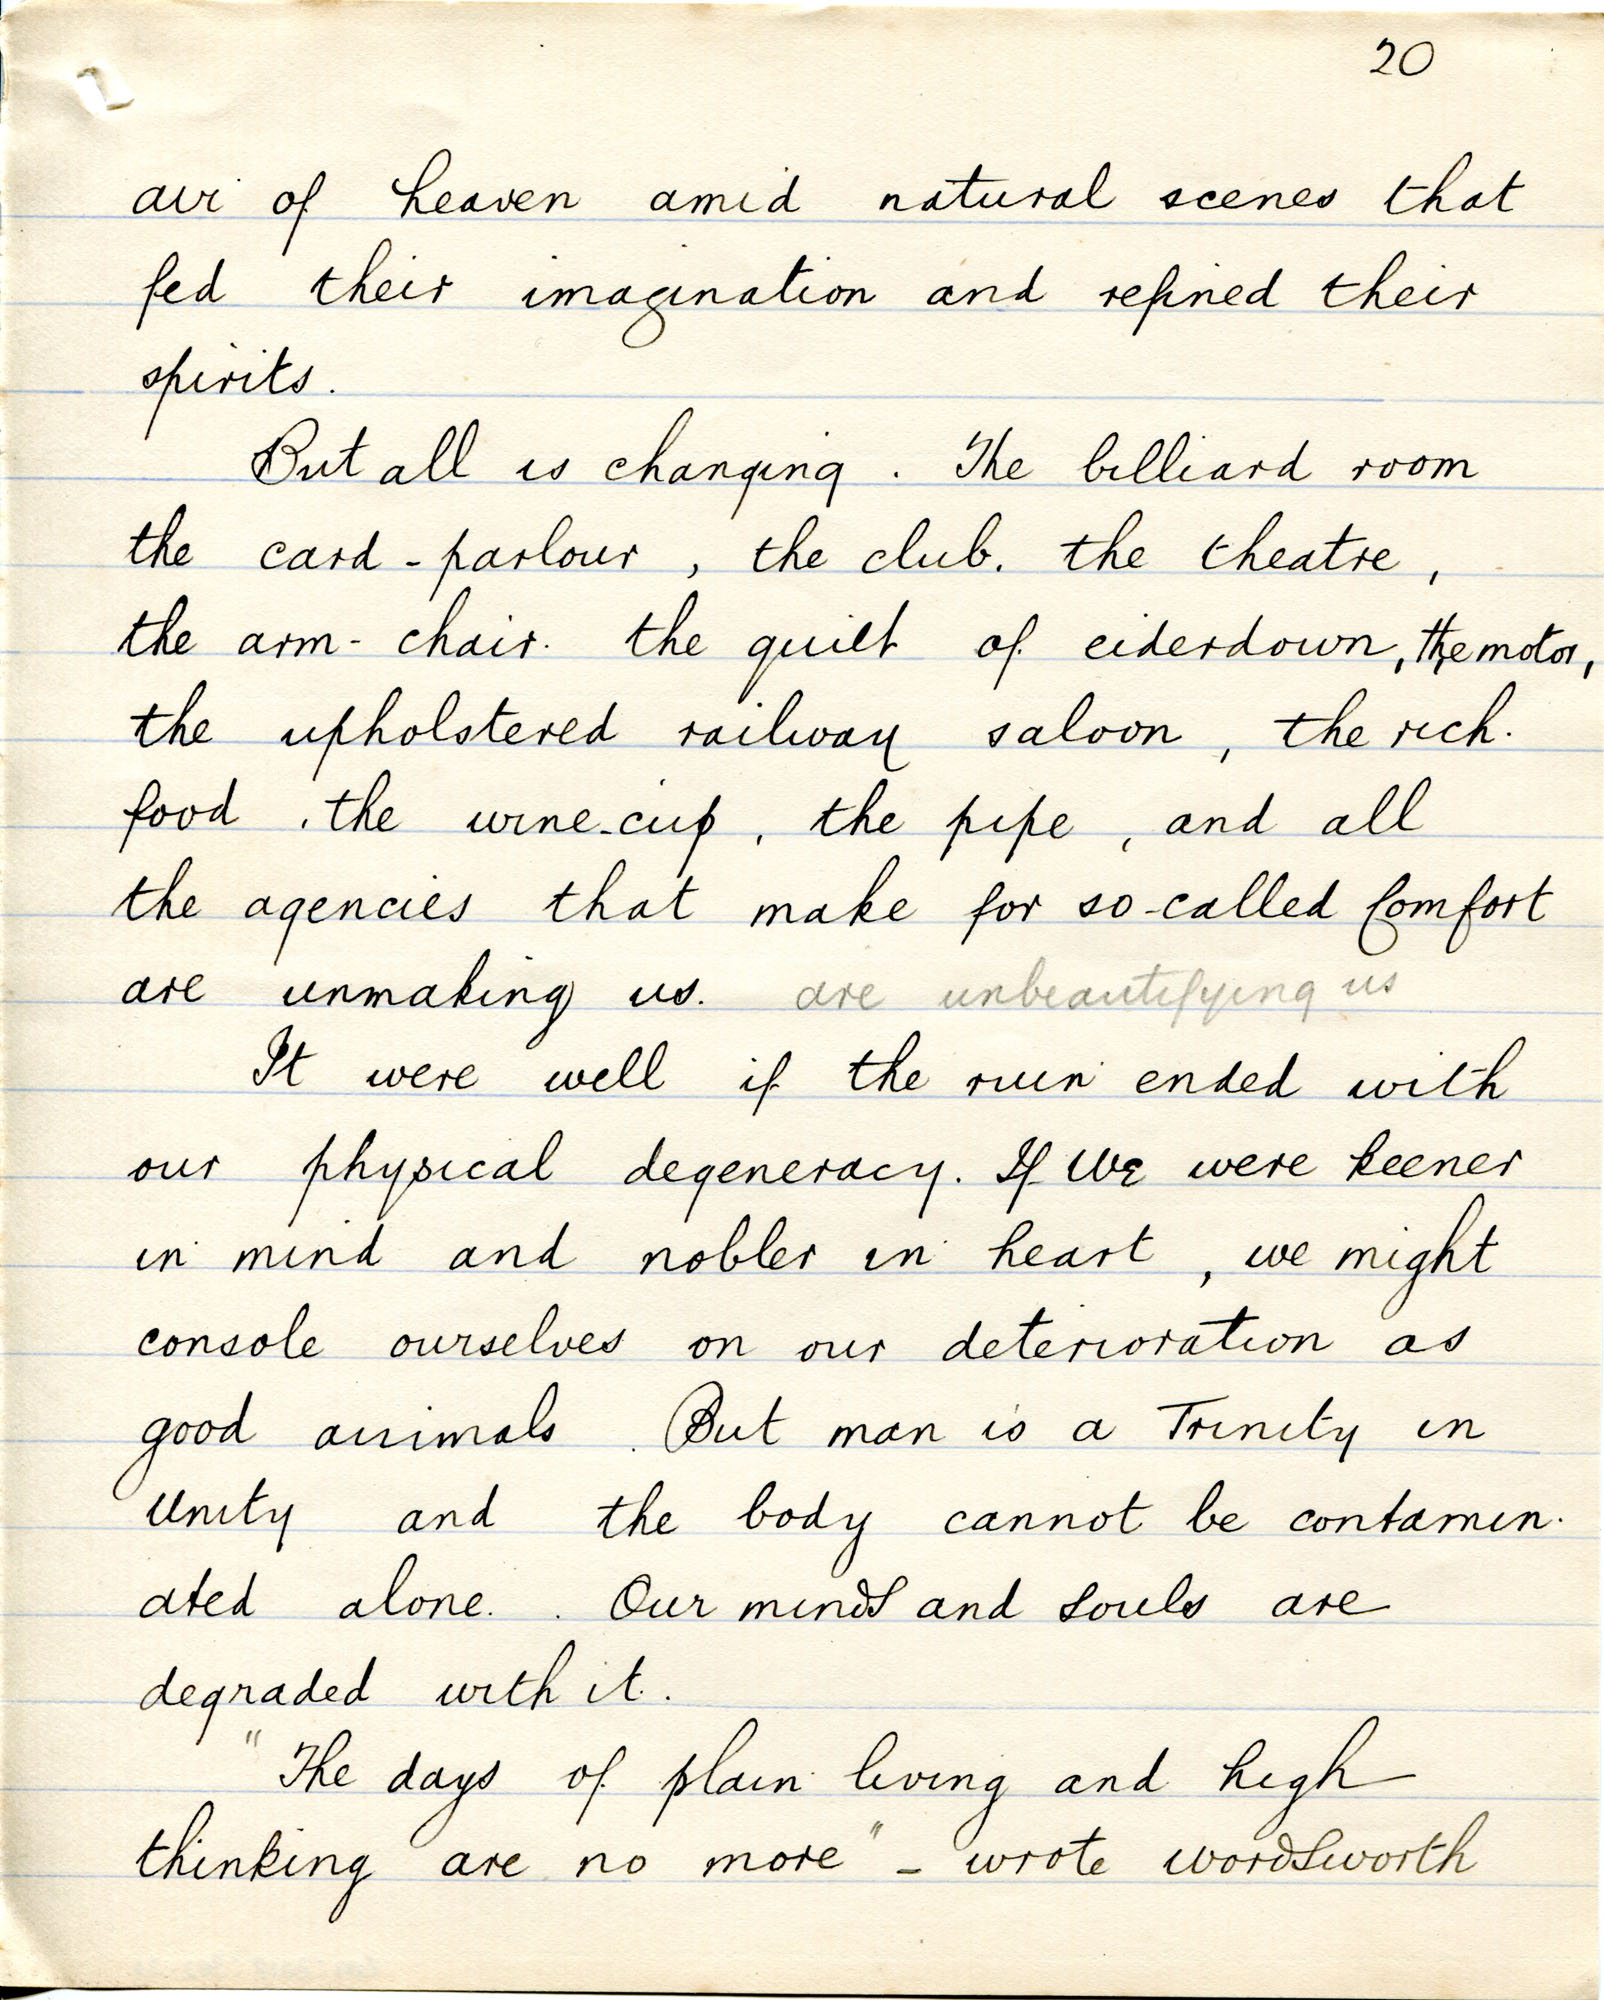 20
air of heaven amid natural scenes that
fed their imagination and refined their
spirits.
But all is changing. The billiard room
the card-parlour, the club. the theatre,
the arm-chair. the quilt of eiderdown, the motor,
the upholstered railway saloon, the rich.
food, the wine-cup, the pipe, and all
the agencies that make for so-called Comfort
are unmaking us. are unbeautifying us
It were well if the ruin ended with
our physical degeneracy. If we were keener
in mind and nobler in heart, we might
console ourselves on our deterioration as
good animals. But man is a Trinity in
Unity and the body cannot be contamin-
ated alone. . Our minds and souls are
degraded with it.
"The days of plain living and high
thinking are no more" - wrote wordsworth